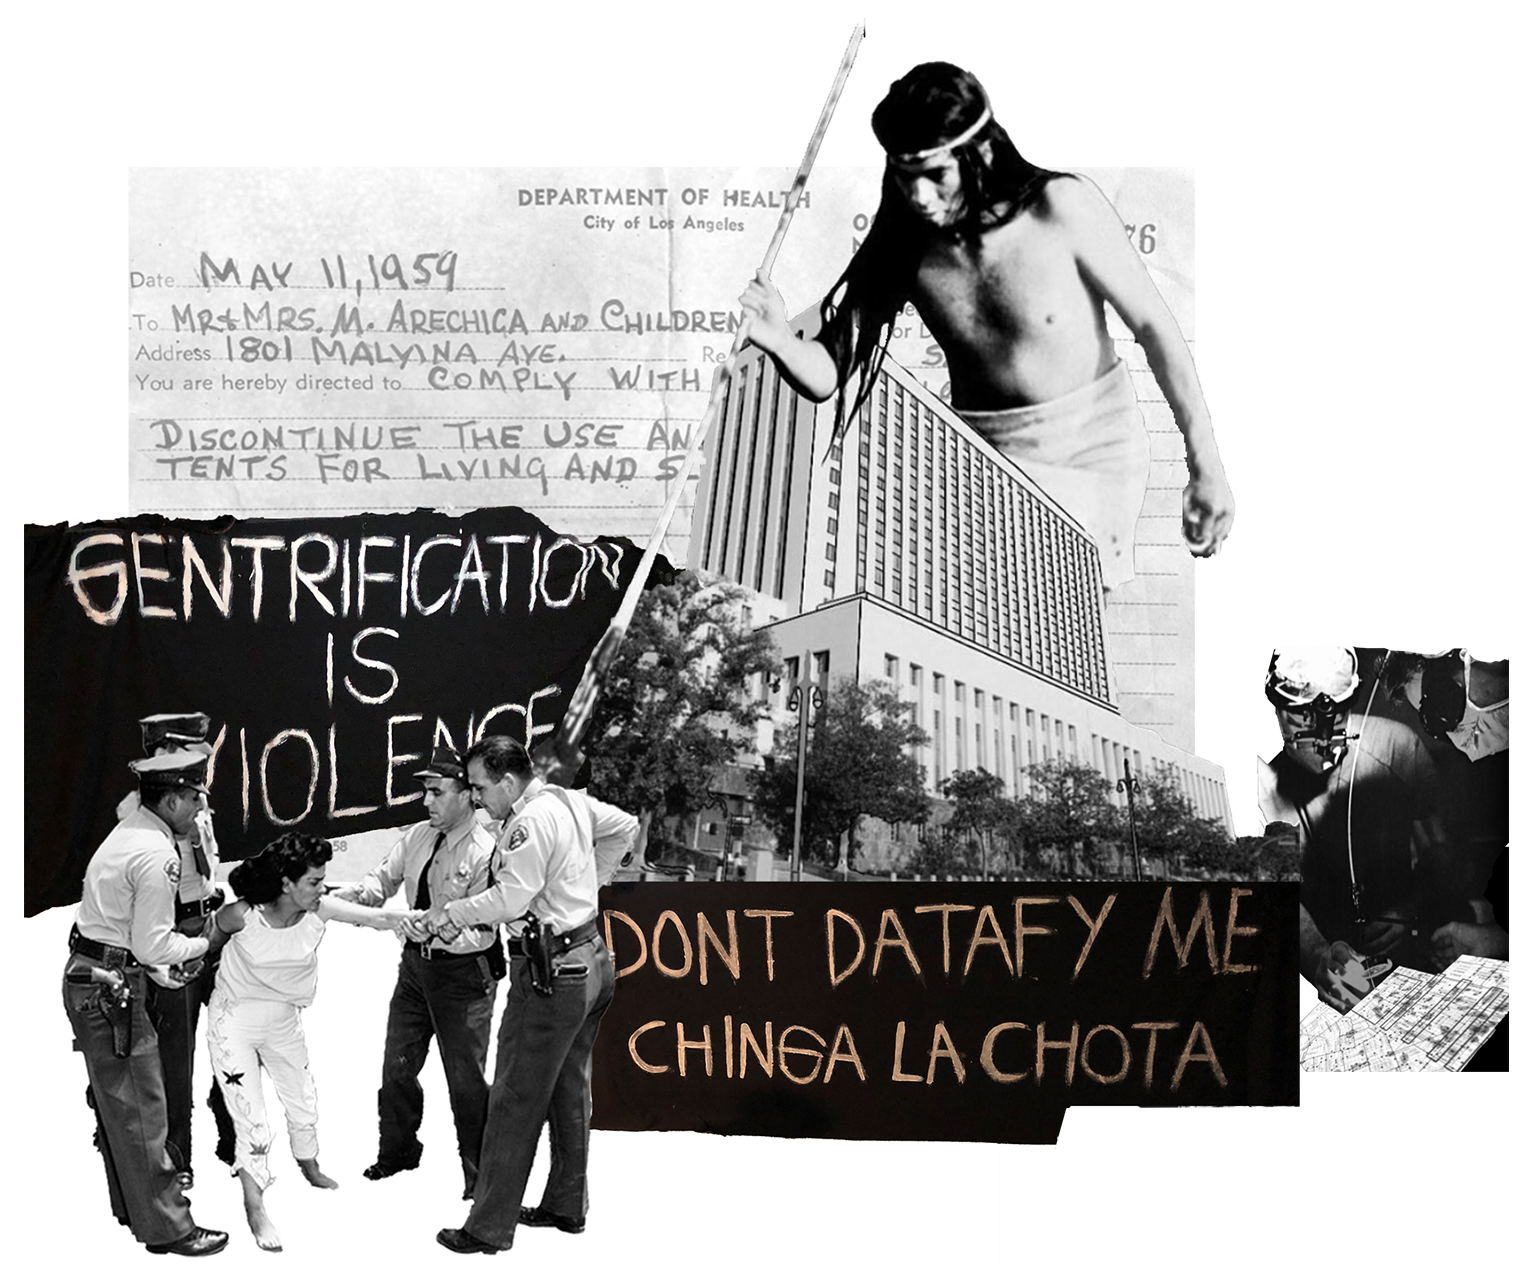 DEPARTMENT OF HEALTH
City of Los Angeles
76
Date MAY 11, 1959
To MR & MRS. M. ARECHIGA AND CHILDREN
Address 1801 MALVINA AVE. Re
You are hereby directed to COMPLY WITH
DISCONTINUE THE USE AN
TENTS FOR LIVING AND SL
GENTRIFICATION
IS
VIOLENCE
58
DONT DATAFY ME
CHINGA LA CHOTA